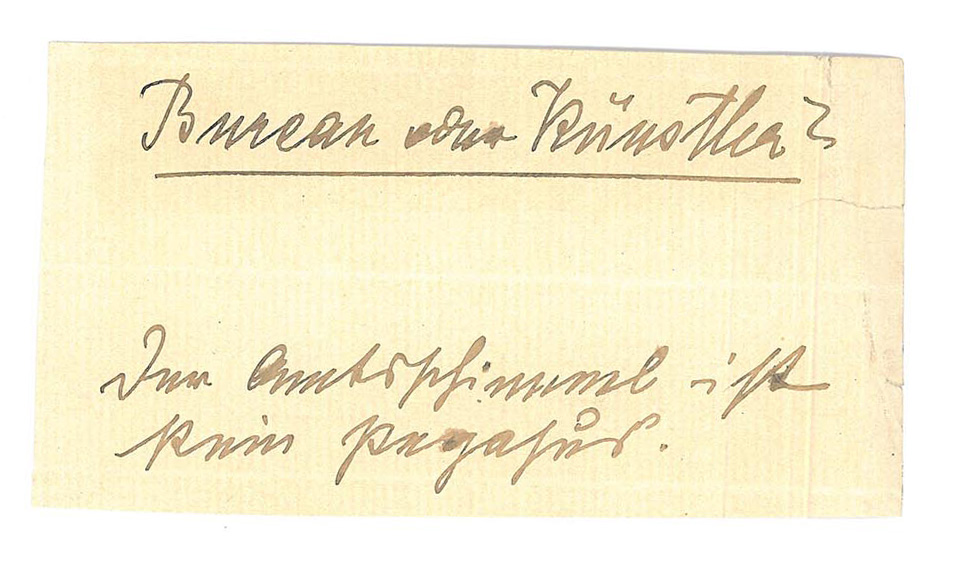 Bureau oder Künstler?
Der Amtsschimmel ist
kein Pegasus.